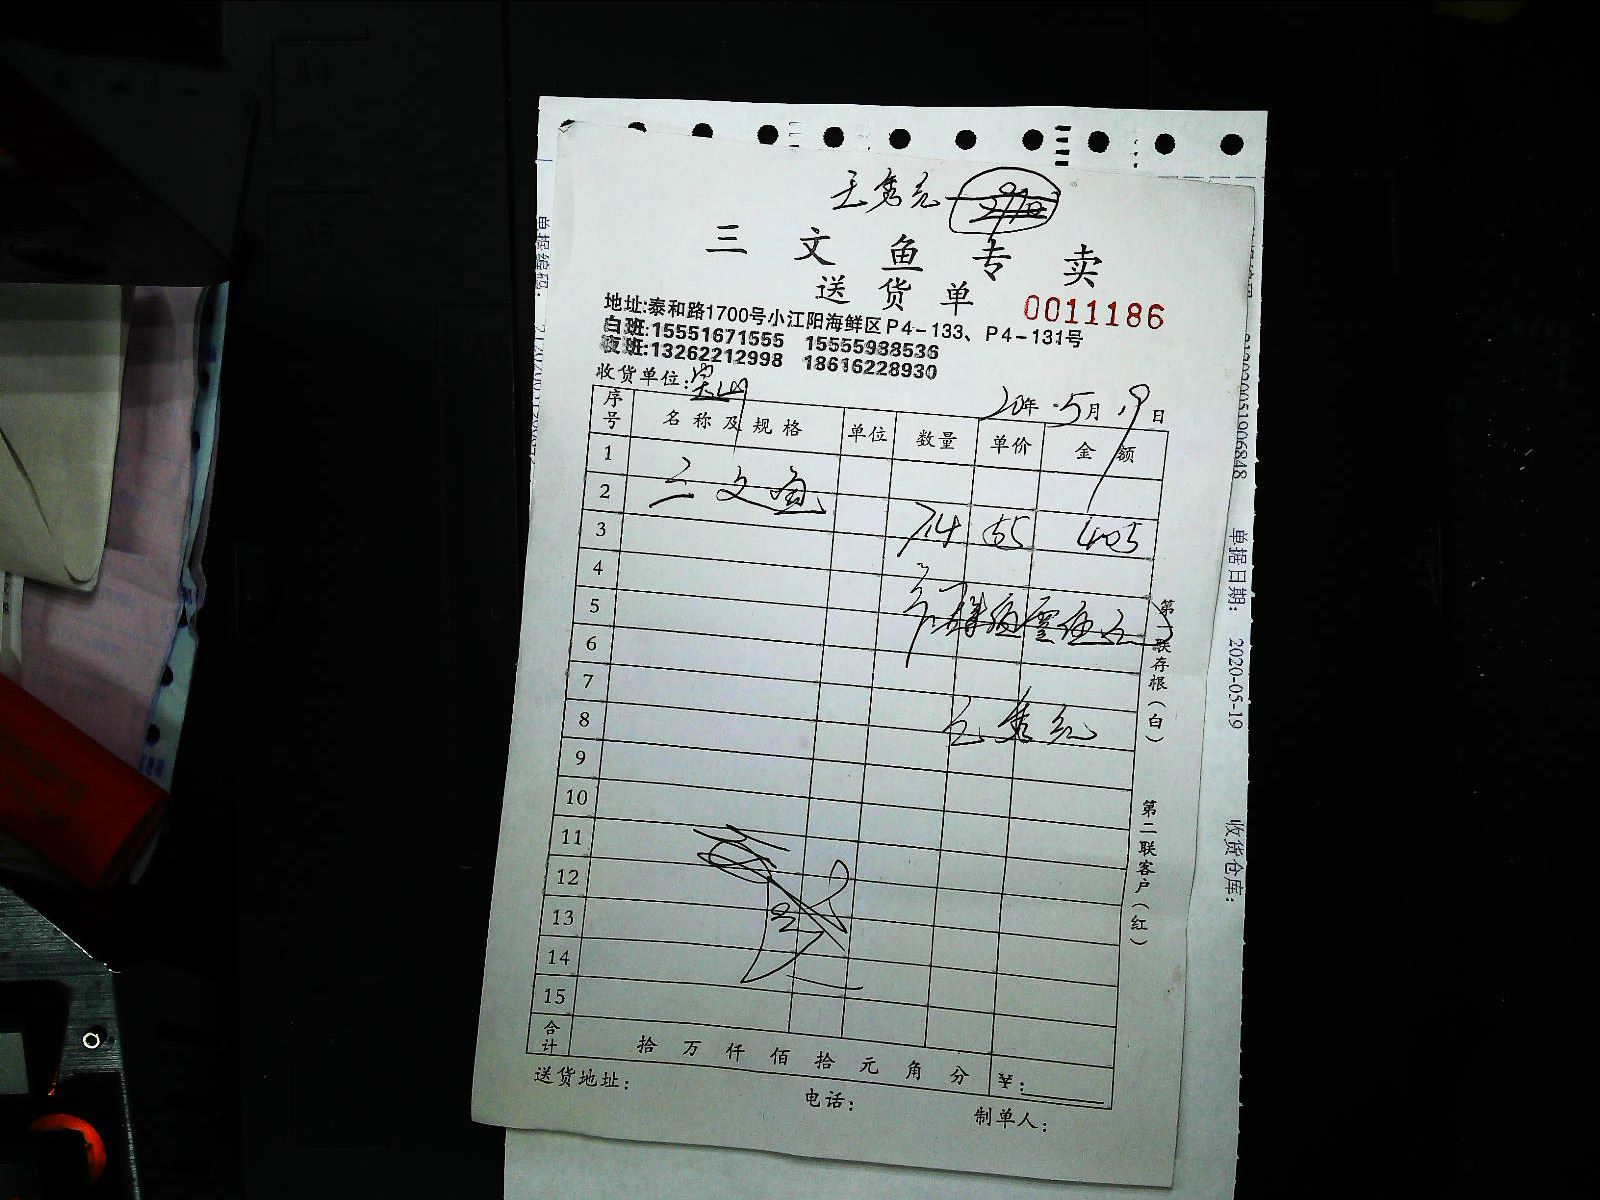 王秀元
三文鱼专卖
送货单 0011186
地址:泰和路1700号小江阳海鲜区P4-133、P4-131号
白班:15551671555 15555988536
夜班:13262212998 18616228930
收货单位:宝山 20年5月19日
序号 名称及规格 单位 数量 单价 金额
1
2 三文鱼
3 7.4 55 405
4
5 肆佰零伍元
6
7
8 王秀元
9
10
11
12
13
14
15
合计 拾 万 仟 佰 拾 元 角 分 ¥:
送货地址: 电话: 制单人:
第一联存根(白)
第二联客户(红)
单据编码:
单据日期: 2020-05-19
收货仓库: